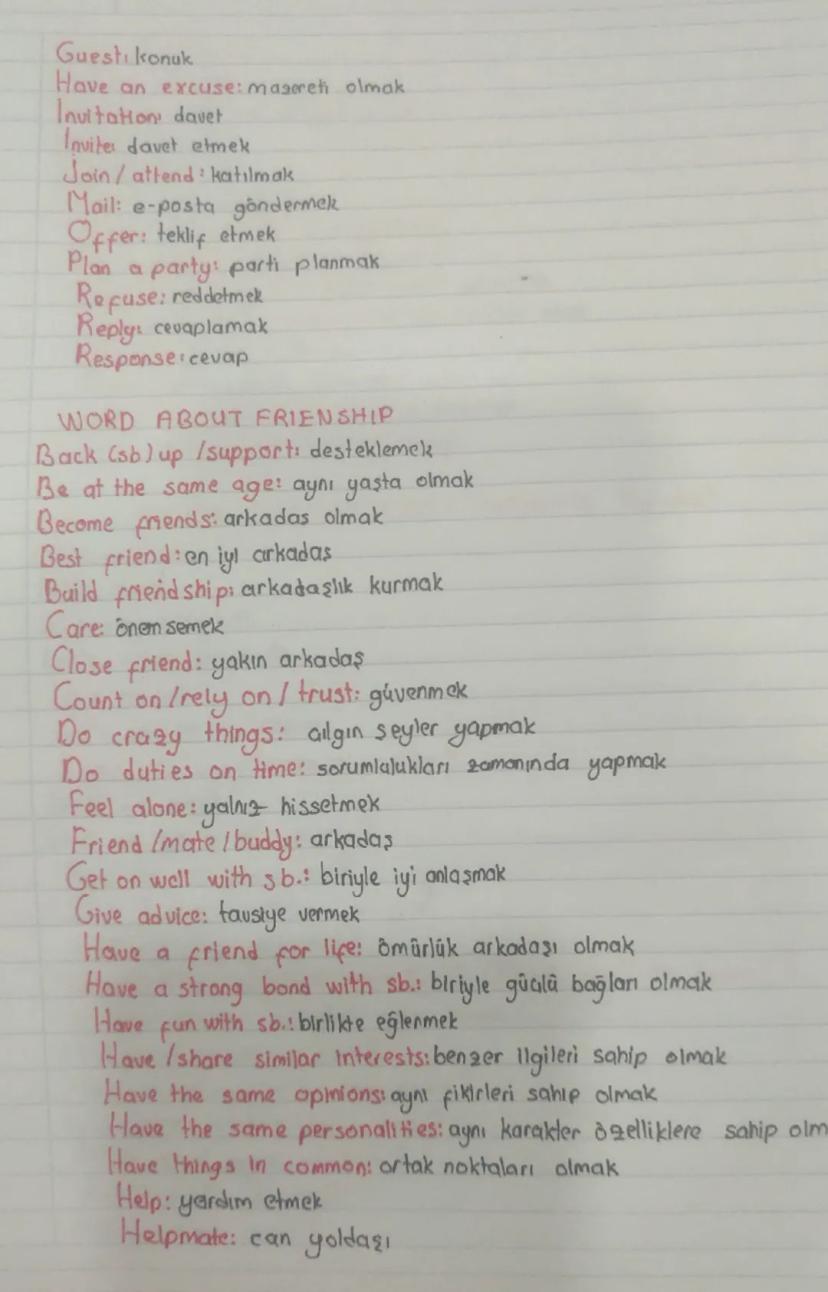 Guest: konuk
Have an excuse: mazereti olmak
Invitation: davet
Invite: davet etmek
Join / attend: katılmak
Mail: e-posta göndermek
Offer: teklif etmek
Plan a party: parti planmak
Refuse: reddetmek
Reply: cevaplamak
Response: cevap
WORD ABOUT FRIENSHIP
Back (sb) up / support: desteklemek
Be at the same age: aynı yaşta olmak
Become friends: arkadas olmak
Best friend: en iyi arkadaş
Build friendship: arkadaşlık kurmak
Care: önemsemek
Close friend: yakın arkadaş
Count on / rely on / trust: güvenmek
Do crazy things: çılgın şeyler yapmak
Do duties on time: sorumlulukları zamanında yapmak
Feel alone: yalnız hissetmek
Friend / mate / buddy: arkadaş
Get on well with sb.: biriyle iyi anlaşmak
Give advice: tavsiye vermek
Have a friend for life: ömürlük arkadaşı olmak
Have a strong bond with sb.: biriyle güçlü bağları olmak
Have fun with sb.: birlikte eğlenmek
Have / share similar interests: benzer ilgileri sahip olmak
Have the same opinions: aynı fikirleri sahip olmak
Have the same personalities: aynı karakter özelliklere sahip olm
Have things in common: ortak noktaları olmak
Help: yardım etmek
Helpmate: can yoldaşı